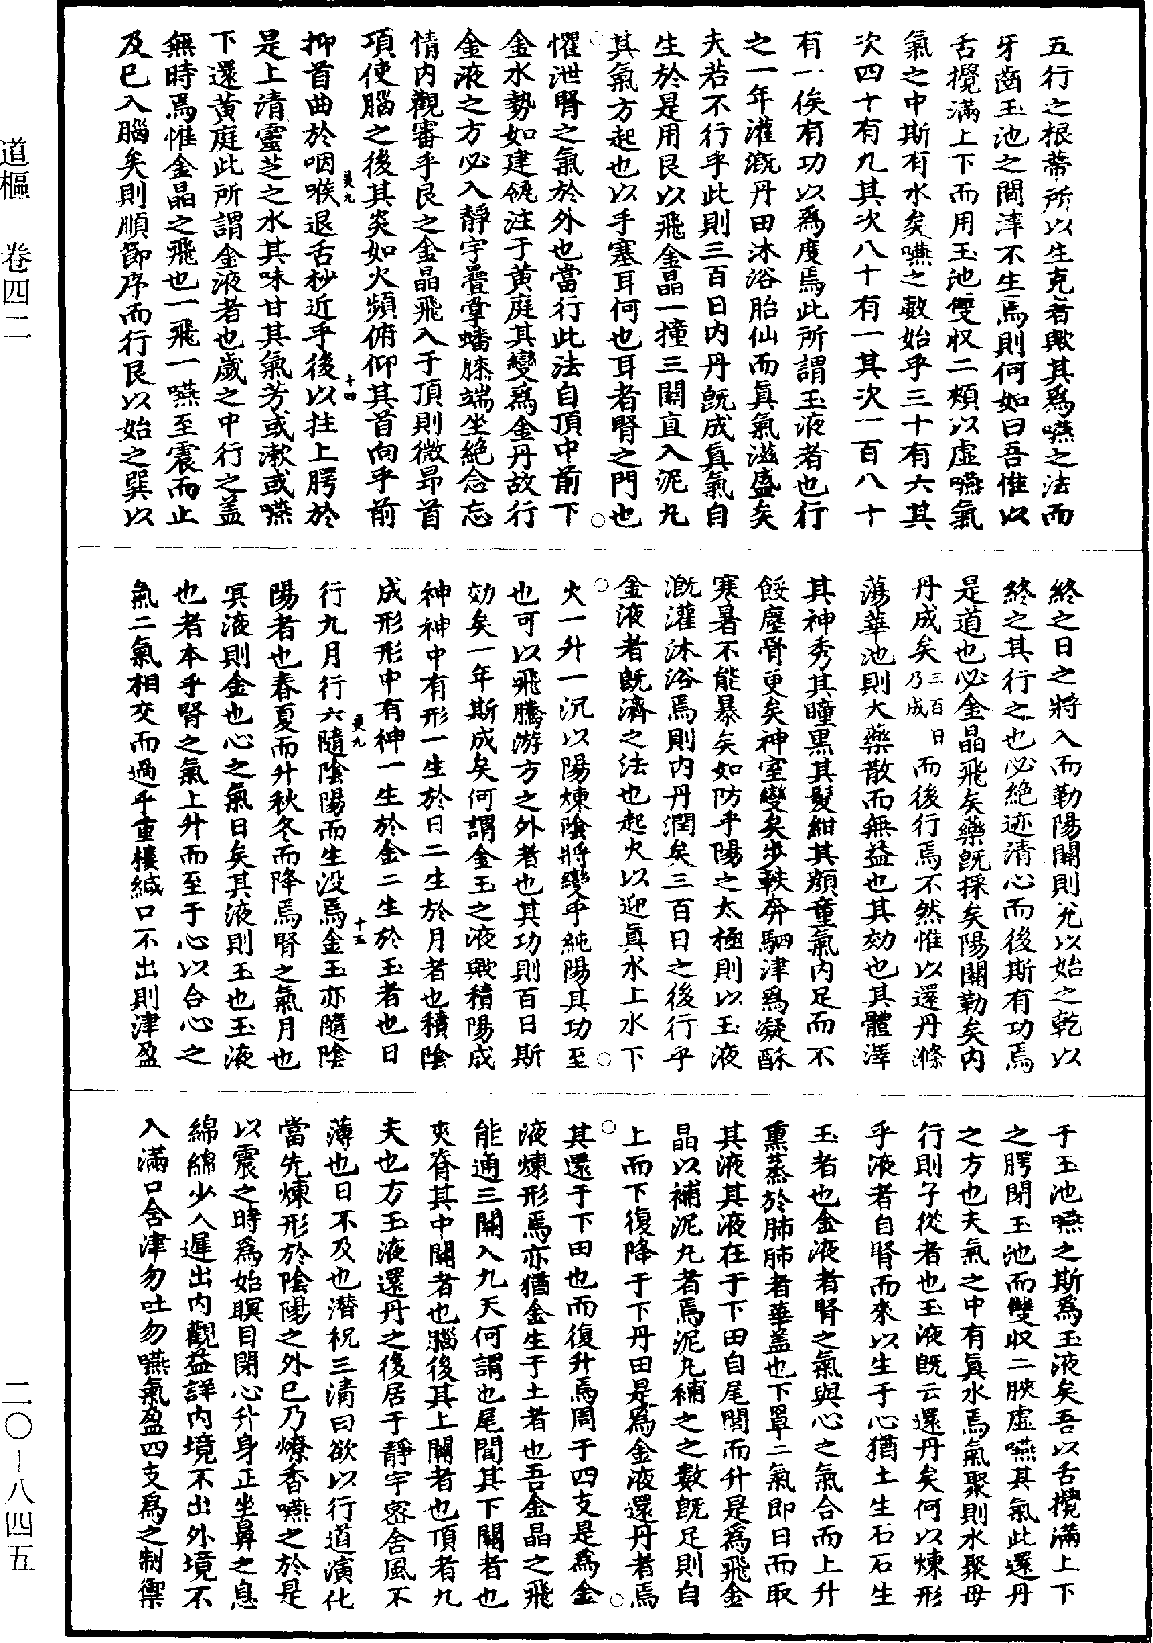 五行之根蔕所以生克者歟其爲嚥之法而
牙齒玉池之間津不生焉則何如曰吾惟以
舌攪滿上下而用玉池雙収二頰以虛嚥氣
氣之中斯有水矣嚥之數始乎三十有六其
次四十有九其次八十有一其次一百八十
有一俟有功以爲度焉此所謂玉液者也行
之一年灌漑丹田沐浴胎仙而眞氣滋盛矣
夫若不行乎此則三百日内丹旣成眞氣自
生於是用艮以飛金晶一撞三關直入泥丸
其氣方起也以手塞耳何也耳者腎之門也
懼泄腎之氣於外也當行此法自頂中前下
金水勢如建瓴注于黃庭其變爲金丹故行
金液之方必入靜宇疊掌蟠膝端坐絶念忘
情内觀審乎艮之金晶飛入于頂則微昻首
項使腦之後其炎如火頻俯仰其首向乎前
抑首曲於咽喉退舌杪近乎後以拄上腭於
是上清靈芝之水其味甘其氣芳或漱或嚥
下還黃庭此所謂金液者也歲之中行之蓋
無時焉惟金晶之飛也一飛一嚥至震而止
及巳入腦矣則順節序而行艮以始之巽以
終之日之將入而勒陽關則兊以始之乾以
終之其行之也必絶迹清心而後斯有功焉
是道也必金晶飛矣藥旣採矣陽關勒矣内
丹成矣三百日乃成而後行焉不然惟以還丹滌
蕩華池則大藥散而無益也其効也其體澤
其神秀其瞳黒其髮紺其顔童氣内足而不
餒塵骨更矣神室變矣步軼奔駟津爲凝酥
寒暑不能暴矣如防乎陽之太極則以玉液
漑灌沐浴焉則内丹潤矣三百日之後行乎
金液者旣濟之法也起火以迎眞水上水下
火一升一沉以陽煉陰將變乎純陽其功至
也可以飛騰游方之外者也其功則百日斯
効矣一年斯成矣何謂金玉之液歟積陽成
神神中有形一生於日二生於月者也積陰
成形形中有神一生於金二生於玉者也日
行九月行六隨陰陽而生没焉金玉亦隨陰
陽者也春夏而升秋冬而降焉腎之氣月也
冥液則金也心之氣日矣其液則玉也玉液
也者本乎腎之氣上升而至于心以合心之
氣二氣相交而過乎重樓緘口不出則津盈
于玉池嚥之斯爲玉液矣吾以舌攪滿上下
之腭閉玉池而雙収二腴虛嚥其氣此還丹
之方也夫氣之中有眞水焉氣聚則水聚母
行則子從者也玉液旣云還丹矣何以煉形
乎液者自腎而來以生于心猶土生石石生
玉者也金液者腎之氣與心之氣合而上升
熏蒸於肺肺者華蓋也下罩二氣即日而取
其液其液在于下田自尾閭而升是爲飛金
晶以補泥丸者焉泥丸補之之數旣足則自
上而下復降于下丹田是爲金液還丹者焉
其還于下田也而復升焉周于四支是爲金
液煉形焉亦猶金生于土者也吾金晶之飛
能通三關入九天何謂也尾閭其下關者也
夾脊其中關者也腦後其上關者也頂者九
天也方玉液還丹之後居于靜宇密舍風不
薄也日不及也潜祝三清曰欲以行道演化
當先煉形於陰陽之外巳乃燎香嚥之於是
以震之時爲始瞑目閉心升身正坐鼻之息
綿綿少入遲出内觀益詳内境不出外境不
入滿口含津勿吐勿嚥氣盈四支爲之制禦
道樞 卷四二
二〇—八四五